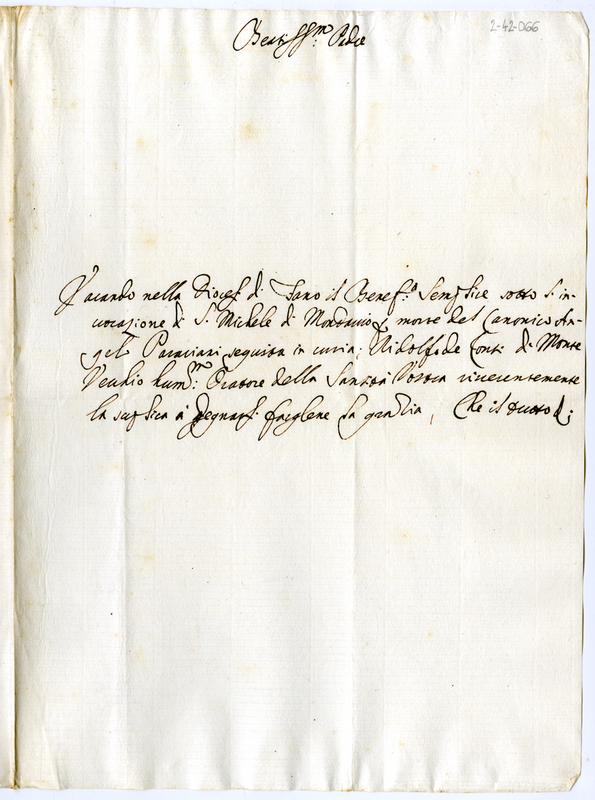 2-42-066
Beatiss.mo Padre
Vacando nella Diocesi di Fano il Benef.o Semplice sotto l'in-
vocazione di S. Michele di Mondavio p morte del Canonico An-
gelo Paracciani seguita in curia; Ridolfo de Conti di Monte
Vecchio hum.mo Oratore della Santità Vostra riverentemente
la supplica à degnarsi farglene la grazia, Che il tutto &;